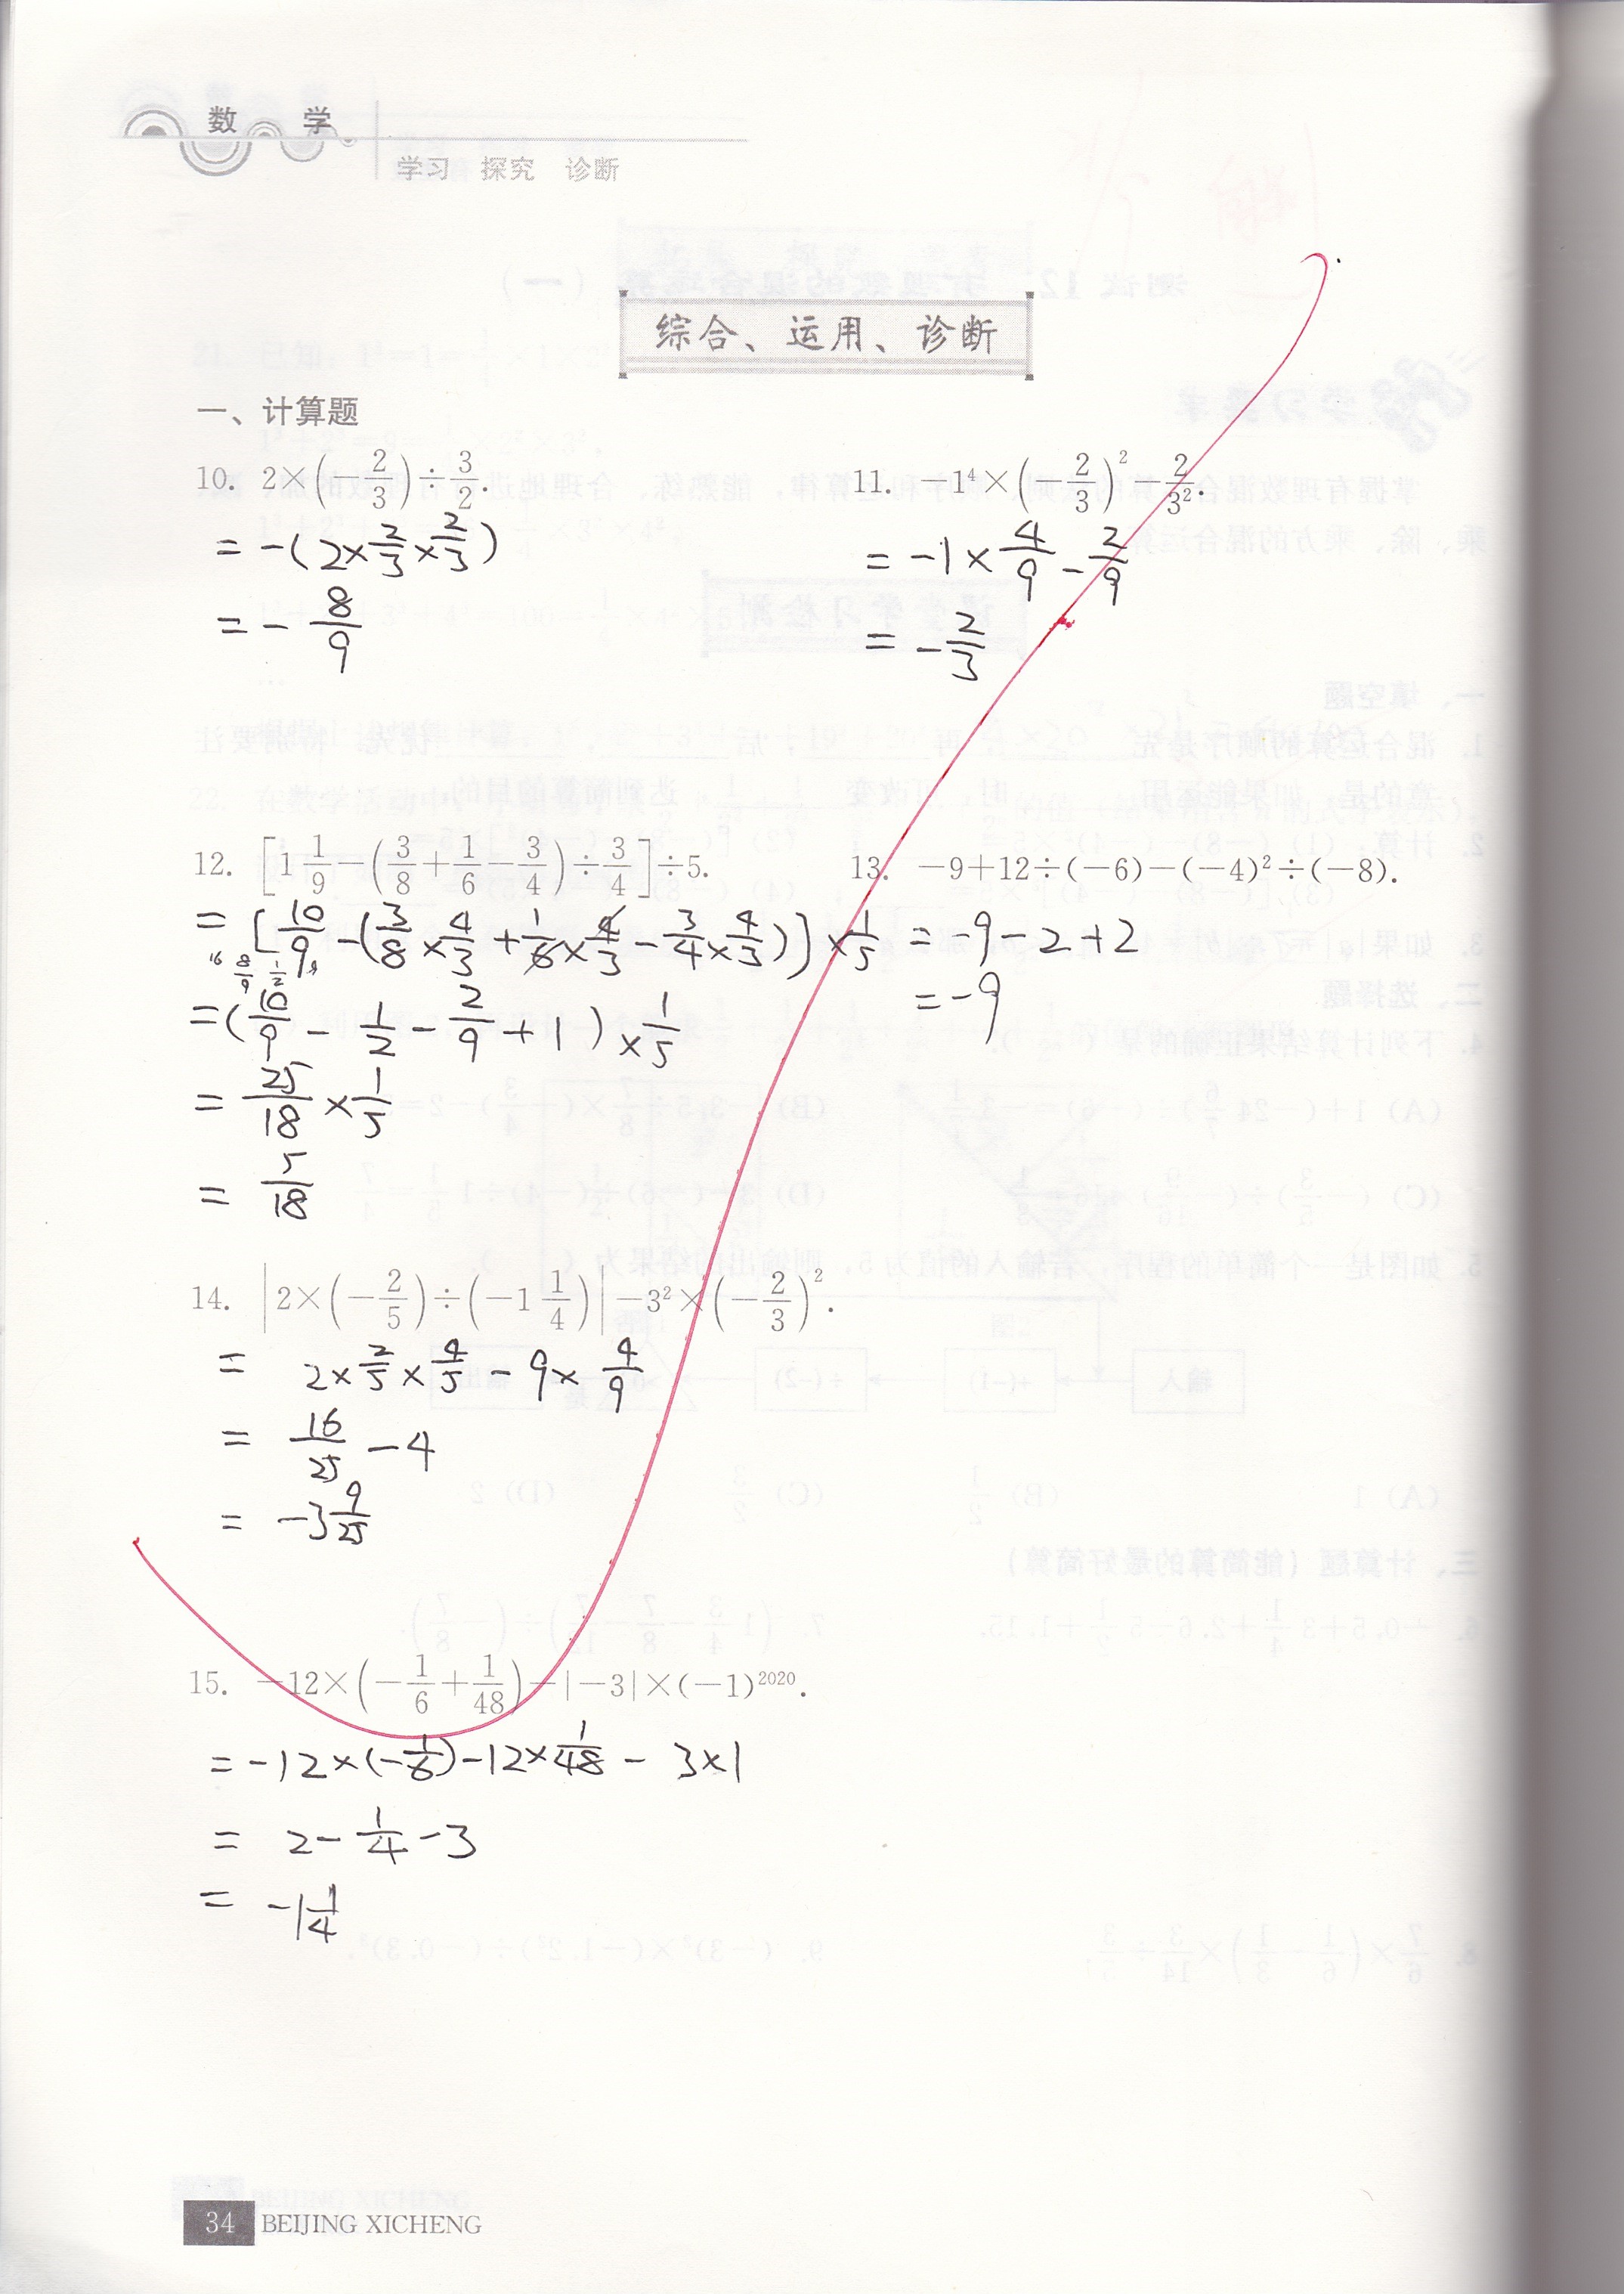 数 学
学习 探究 诊断
综合、运用、诊断
一、计算题
10. 2×(-2/3)÷3/2.
=-(2×2/3×2/3)
=-8/9
11. -1⁴×(-2/3)²-2/3².
=-1×4/9-2/9
=-2/3
12. [1 1/9-(3/8+1/6-3/4)÷3/4]÷5.
=[10/9-(3/8×4/3+1/6×4/3-3/4×4/3)]×1/5
=(10/9-1/2-2/9+1)×1/5
=25/18×1/5
=5/18
13. -9+12÷(-6)-(-4)²÷(-8).
=-9-2+2
=-9
14. |2×(-2/5)÷(-1 1/4)|-3²×(-2/3)².
=2×2/5×4/5-9×4/9
=16/25-4
=-3 9/25
15. -12×(-1/6+1/48)-|-3|×(-1)²⁰²⁰.
=-12×(-1/6)-12×1/48-3×1
=2-1/4-3
=-1 1/4
34 BEIJING XICHENG